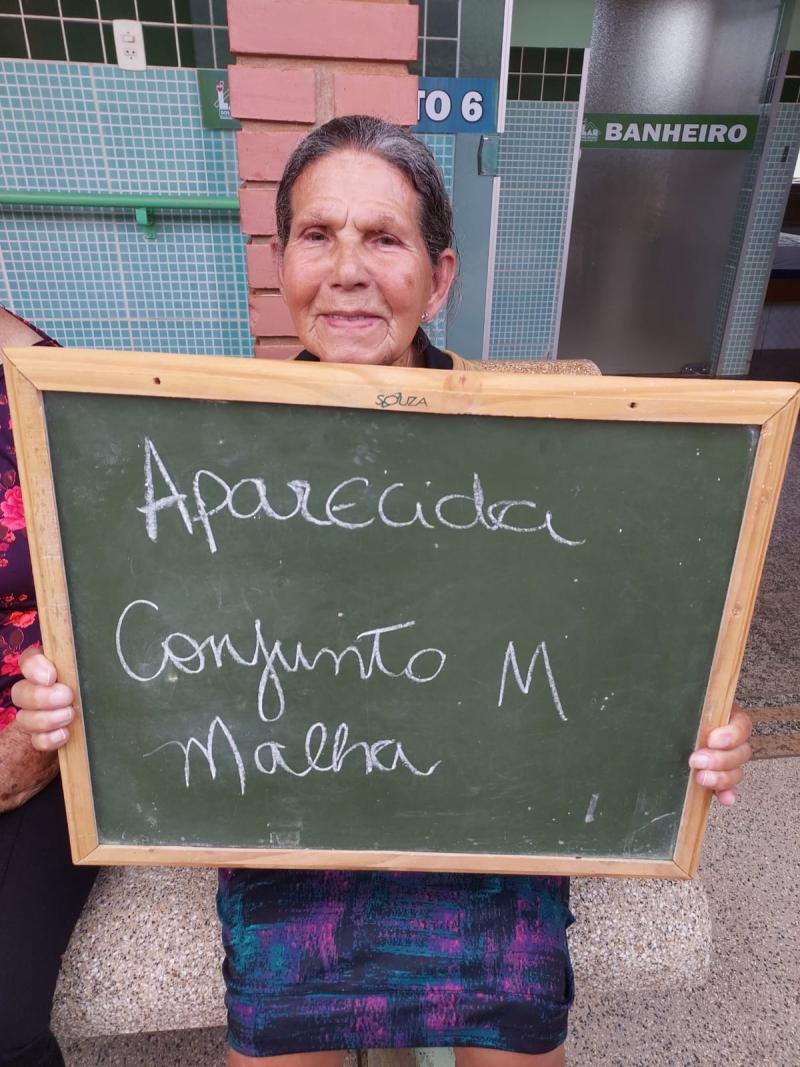 TO 6
BANHEIRO
SOUZA
Aparecida
Conjunto M
Malha